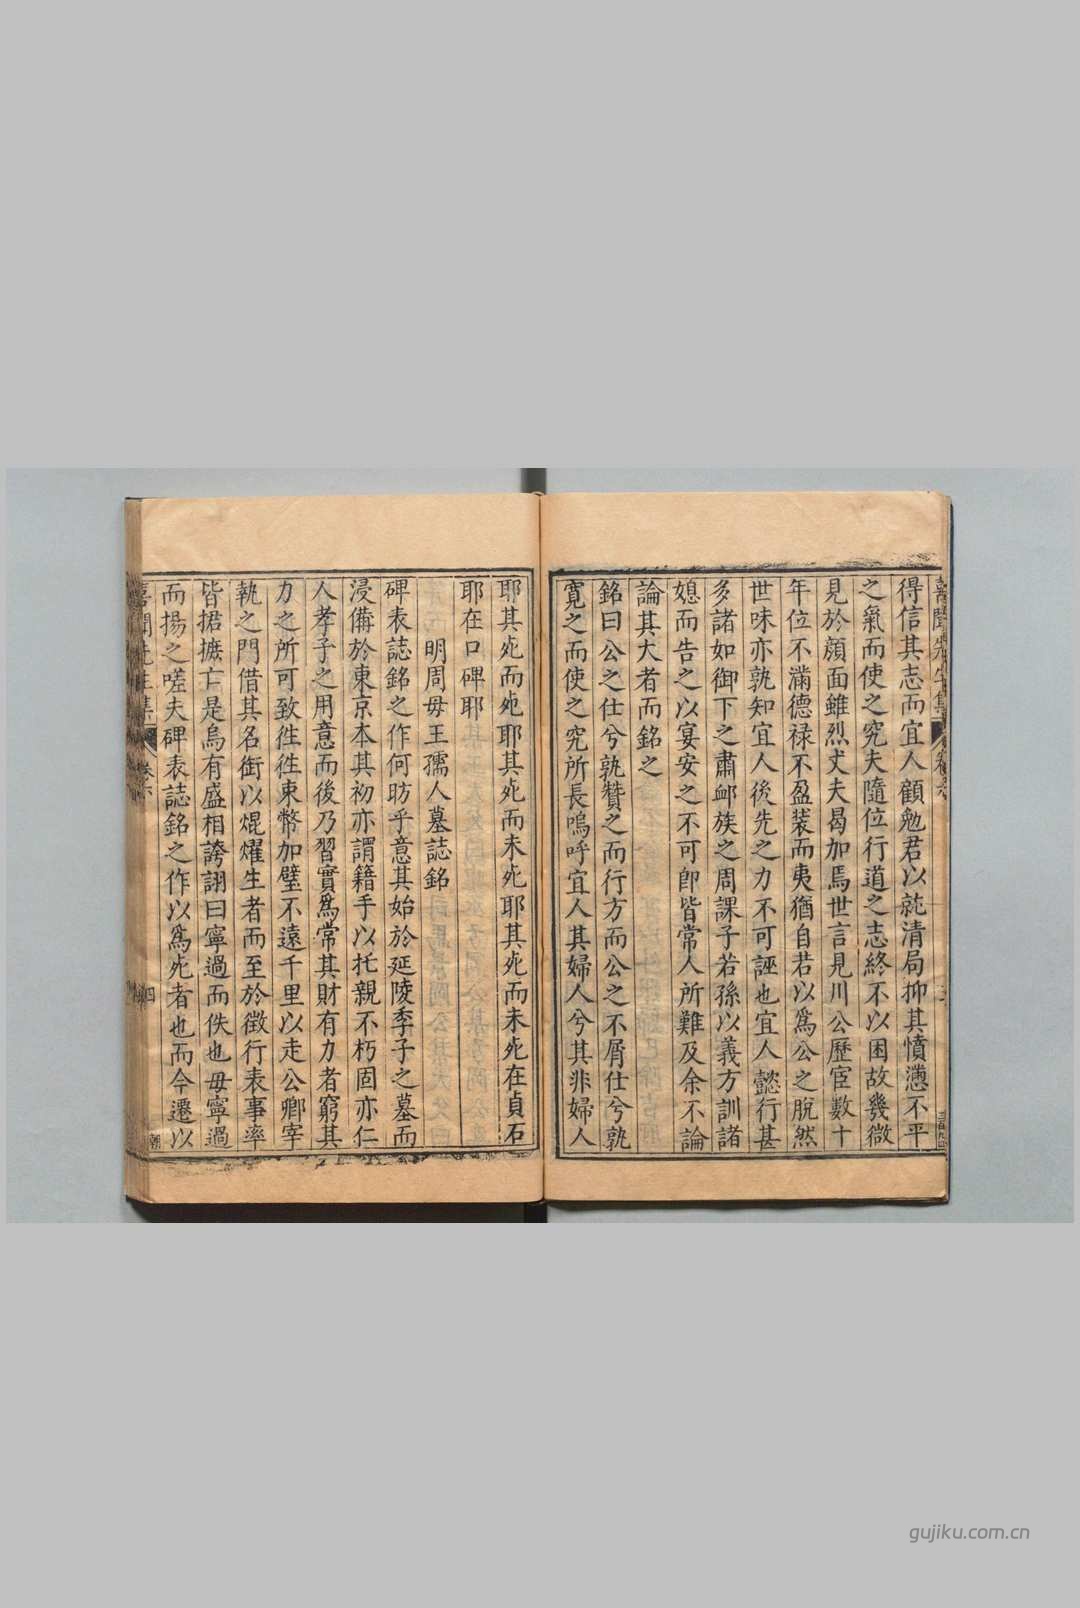 得信其志而宜人顧勉君以就清局抑其憤懣不平
之氣而使之究夫隨位行道之志終不以困故幾微
見於顔面雖烈丈夫曷加焉世言見川公歷宦數十
年位不滿德禄不盈装而夷猶自若以爲公之脫然
世味亦孰知宜人後先之力不可誣也宜人懿行甚
多諸如御下之肅䘏族之周課子若孫以義方訓諸
媳而告之以宴安之不可卽皆常人所難及余不論
論其大者而銘之
銘曰公之仕兮孰贊之而行方而公之不屑仕兮孰
寛之而使之究所長嗚呼宜人其婦人兮其非婦人
耶其死而死耶其死而未死耶其死而未死在貞石
耶在口碑耶
明周毋王孺人墓誌銘
碑表誌銘之作何昉乎意其始於延陵季子之墓而
浸備於東京本其初亦謂籍手以托親不朽固亦仁
人孝子之用意而後乃習實爲常其財有力者窮其
力之所可致徃徃束幣加璧不遠千里以走公卿宰
執之門借其名銜以焜燿生者而至於徵行表事率
皆捃摭亡是烏有盛相誇詡曰寧過而佚也毋寧過
而揚之嗟夫碑表誌銘之作以爲死者也而今遷以
喜聞先生集 卷之六 四
gujiku.com.cn